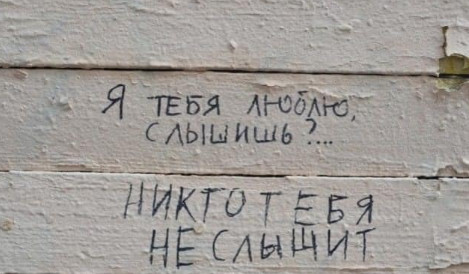 Я ТЕБЯ ЛЮБЛЮ,
СЛЫШИШЬ?...
НИКТО ТЕБЯ
НЕ СЛЫШИТ